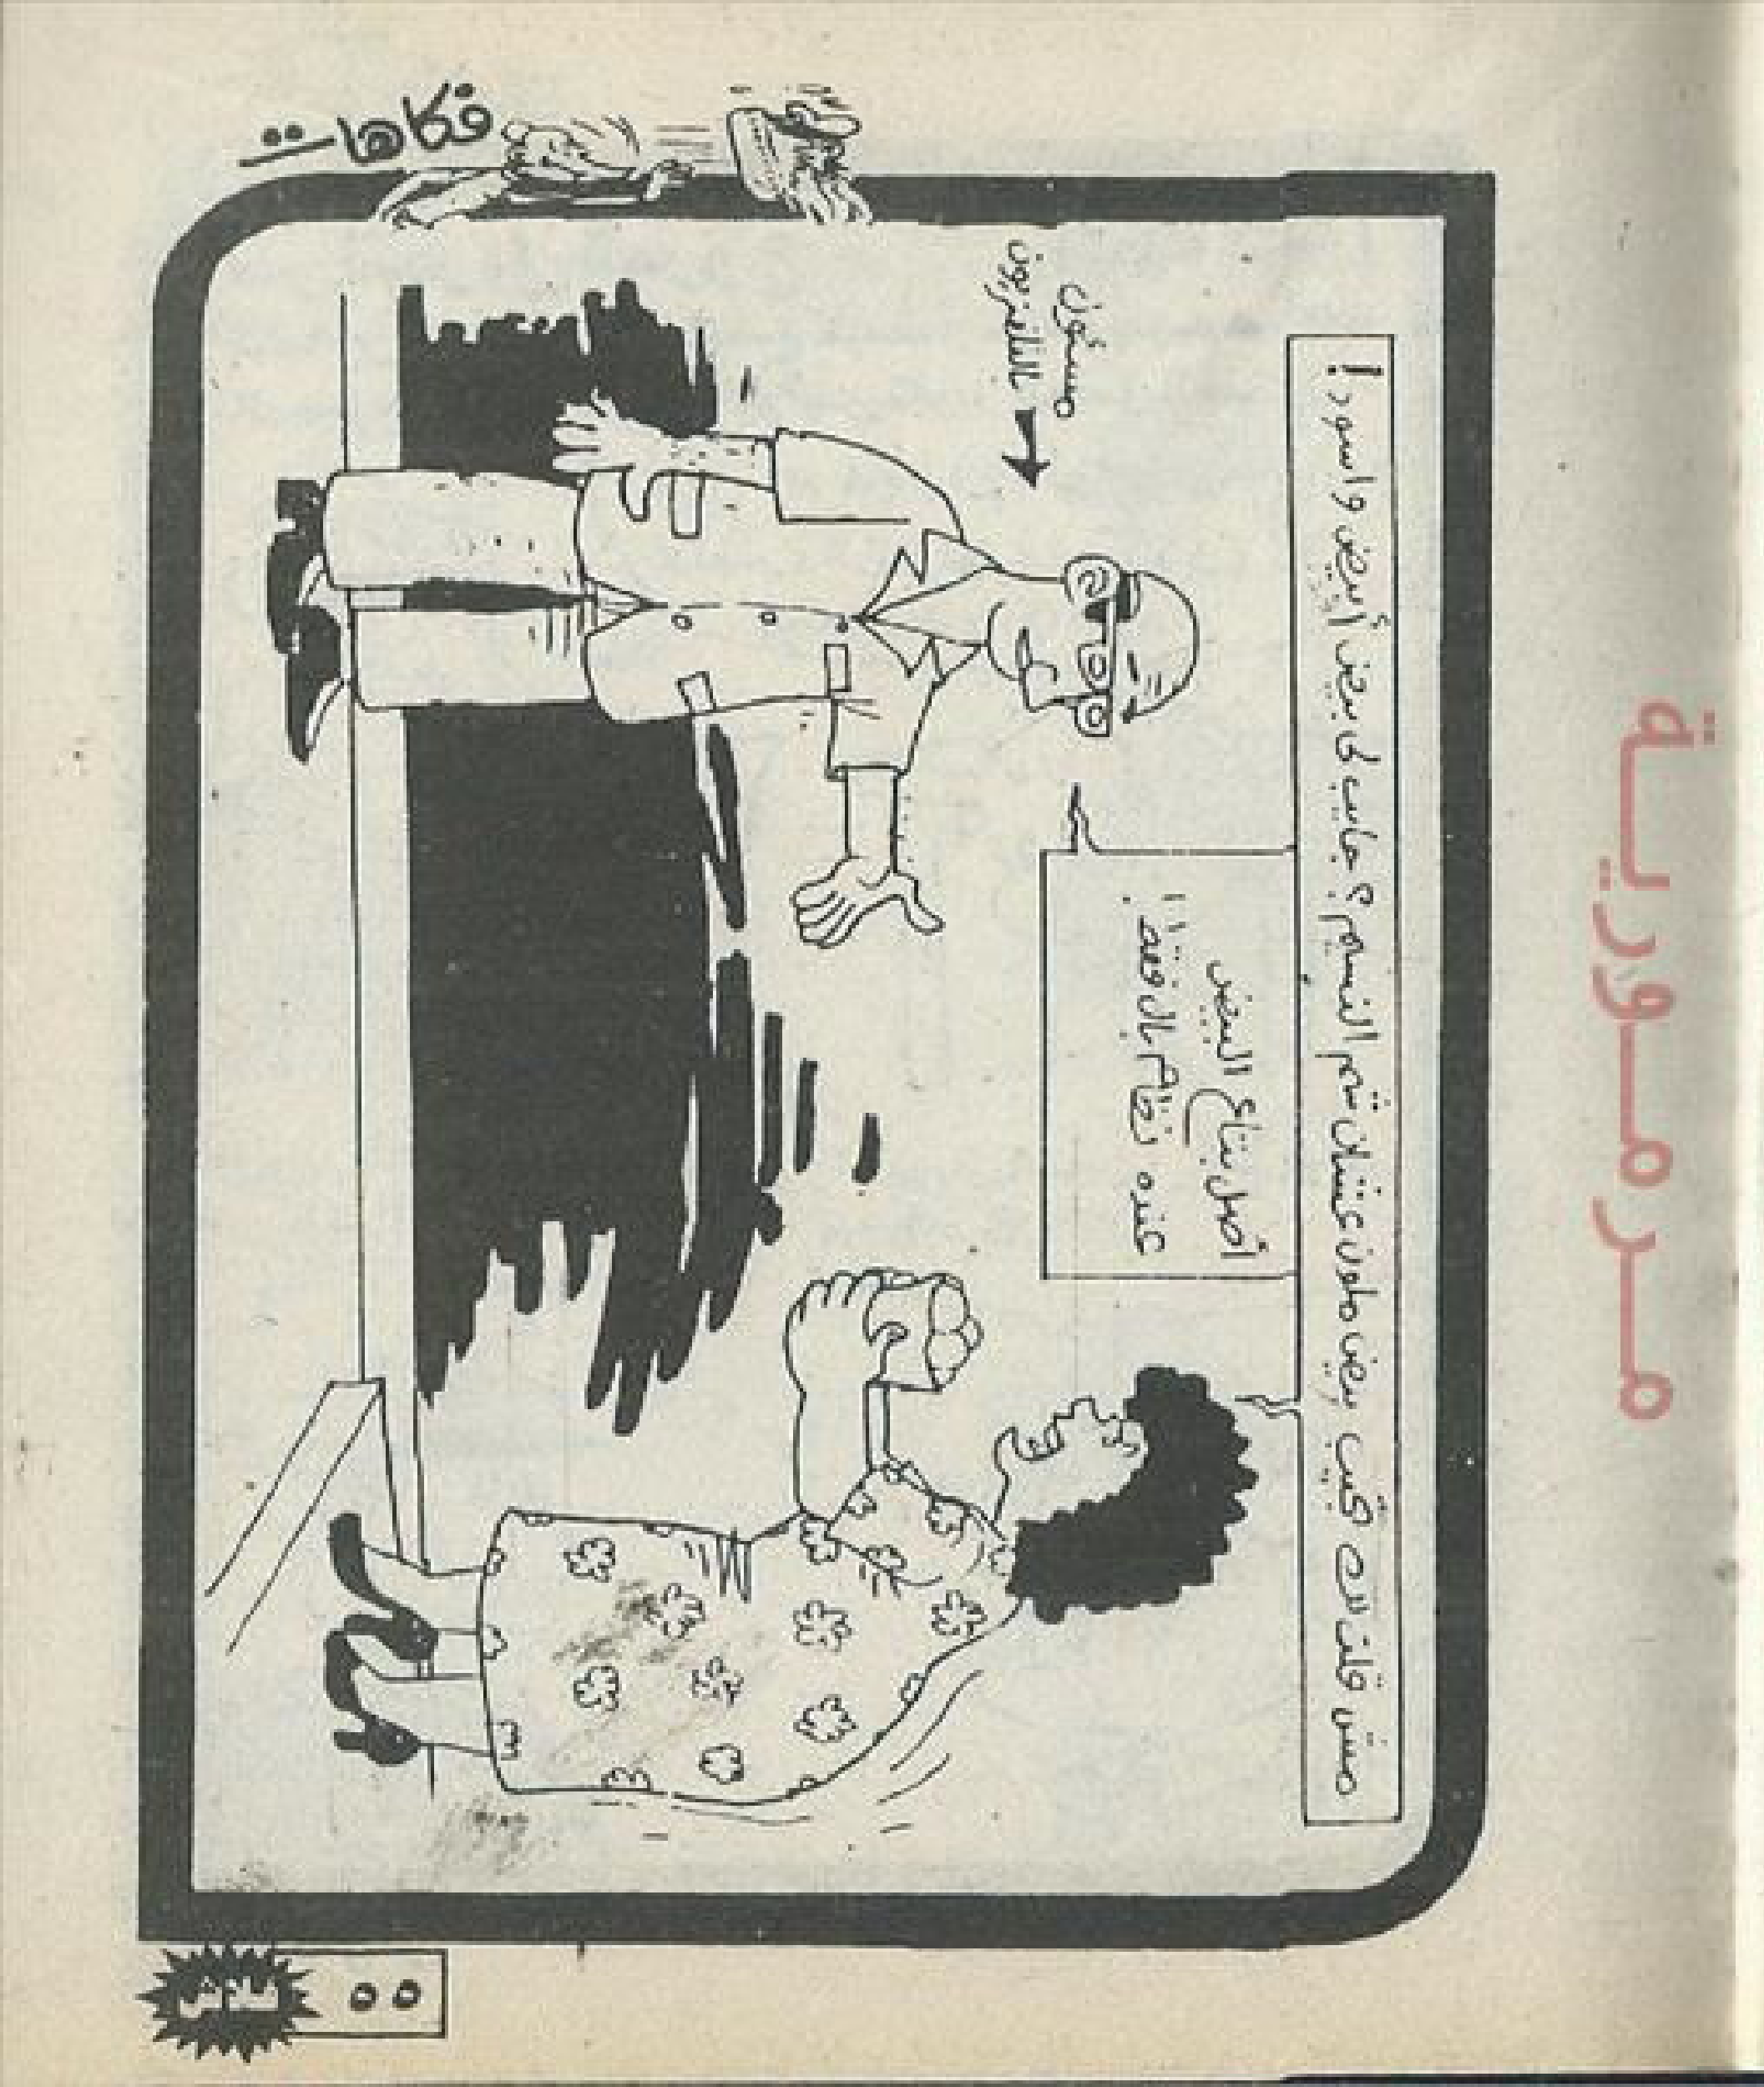 مش قلت لك تجيب بيض ملون عشان شم النسيم؟ جايب لى بيض أبيض واسود!
أصل بتاع البيض
عنده نظام بال فقط!!
مسئول
بالتلفزيون
فكاهات
٥٥
مرمورية